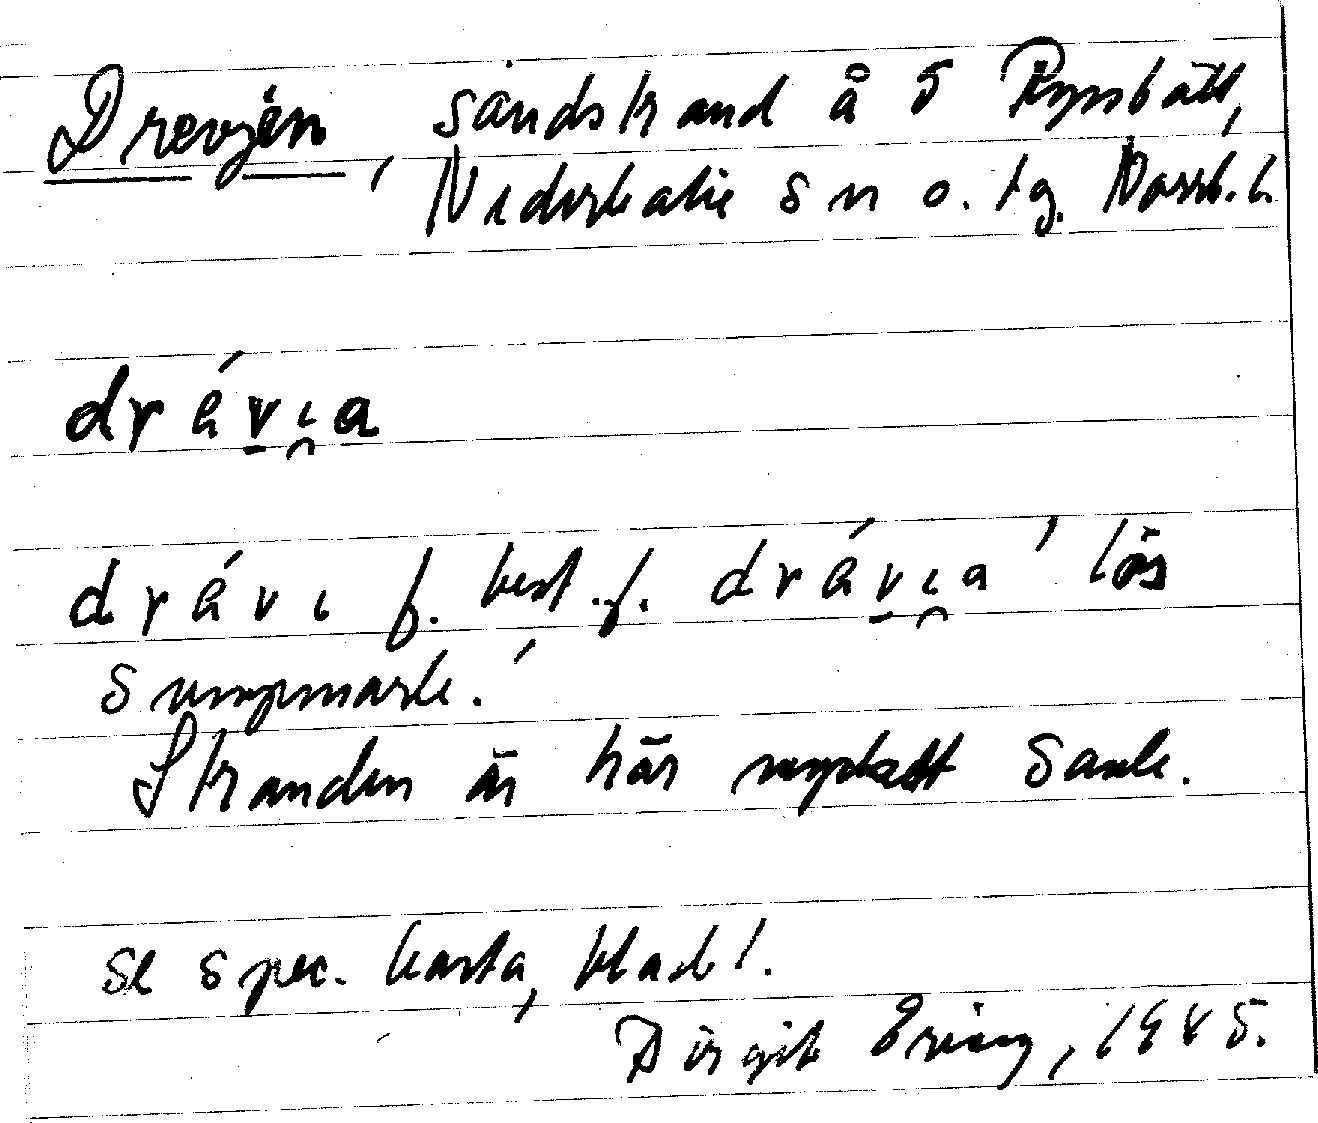 Drevjen, sandstrand å 5 Rynbält,
Niderkalix sn o. tg. Norrb. l.
drávi̯a
drávı f. best. f. drávi̯a ' lös
sumpmark.'
Stranden är här mycket sank.
se spec. karta, blad 1.
Birgit Ering, 1945.